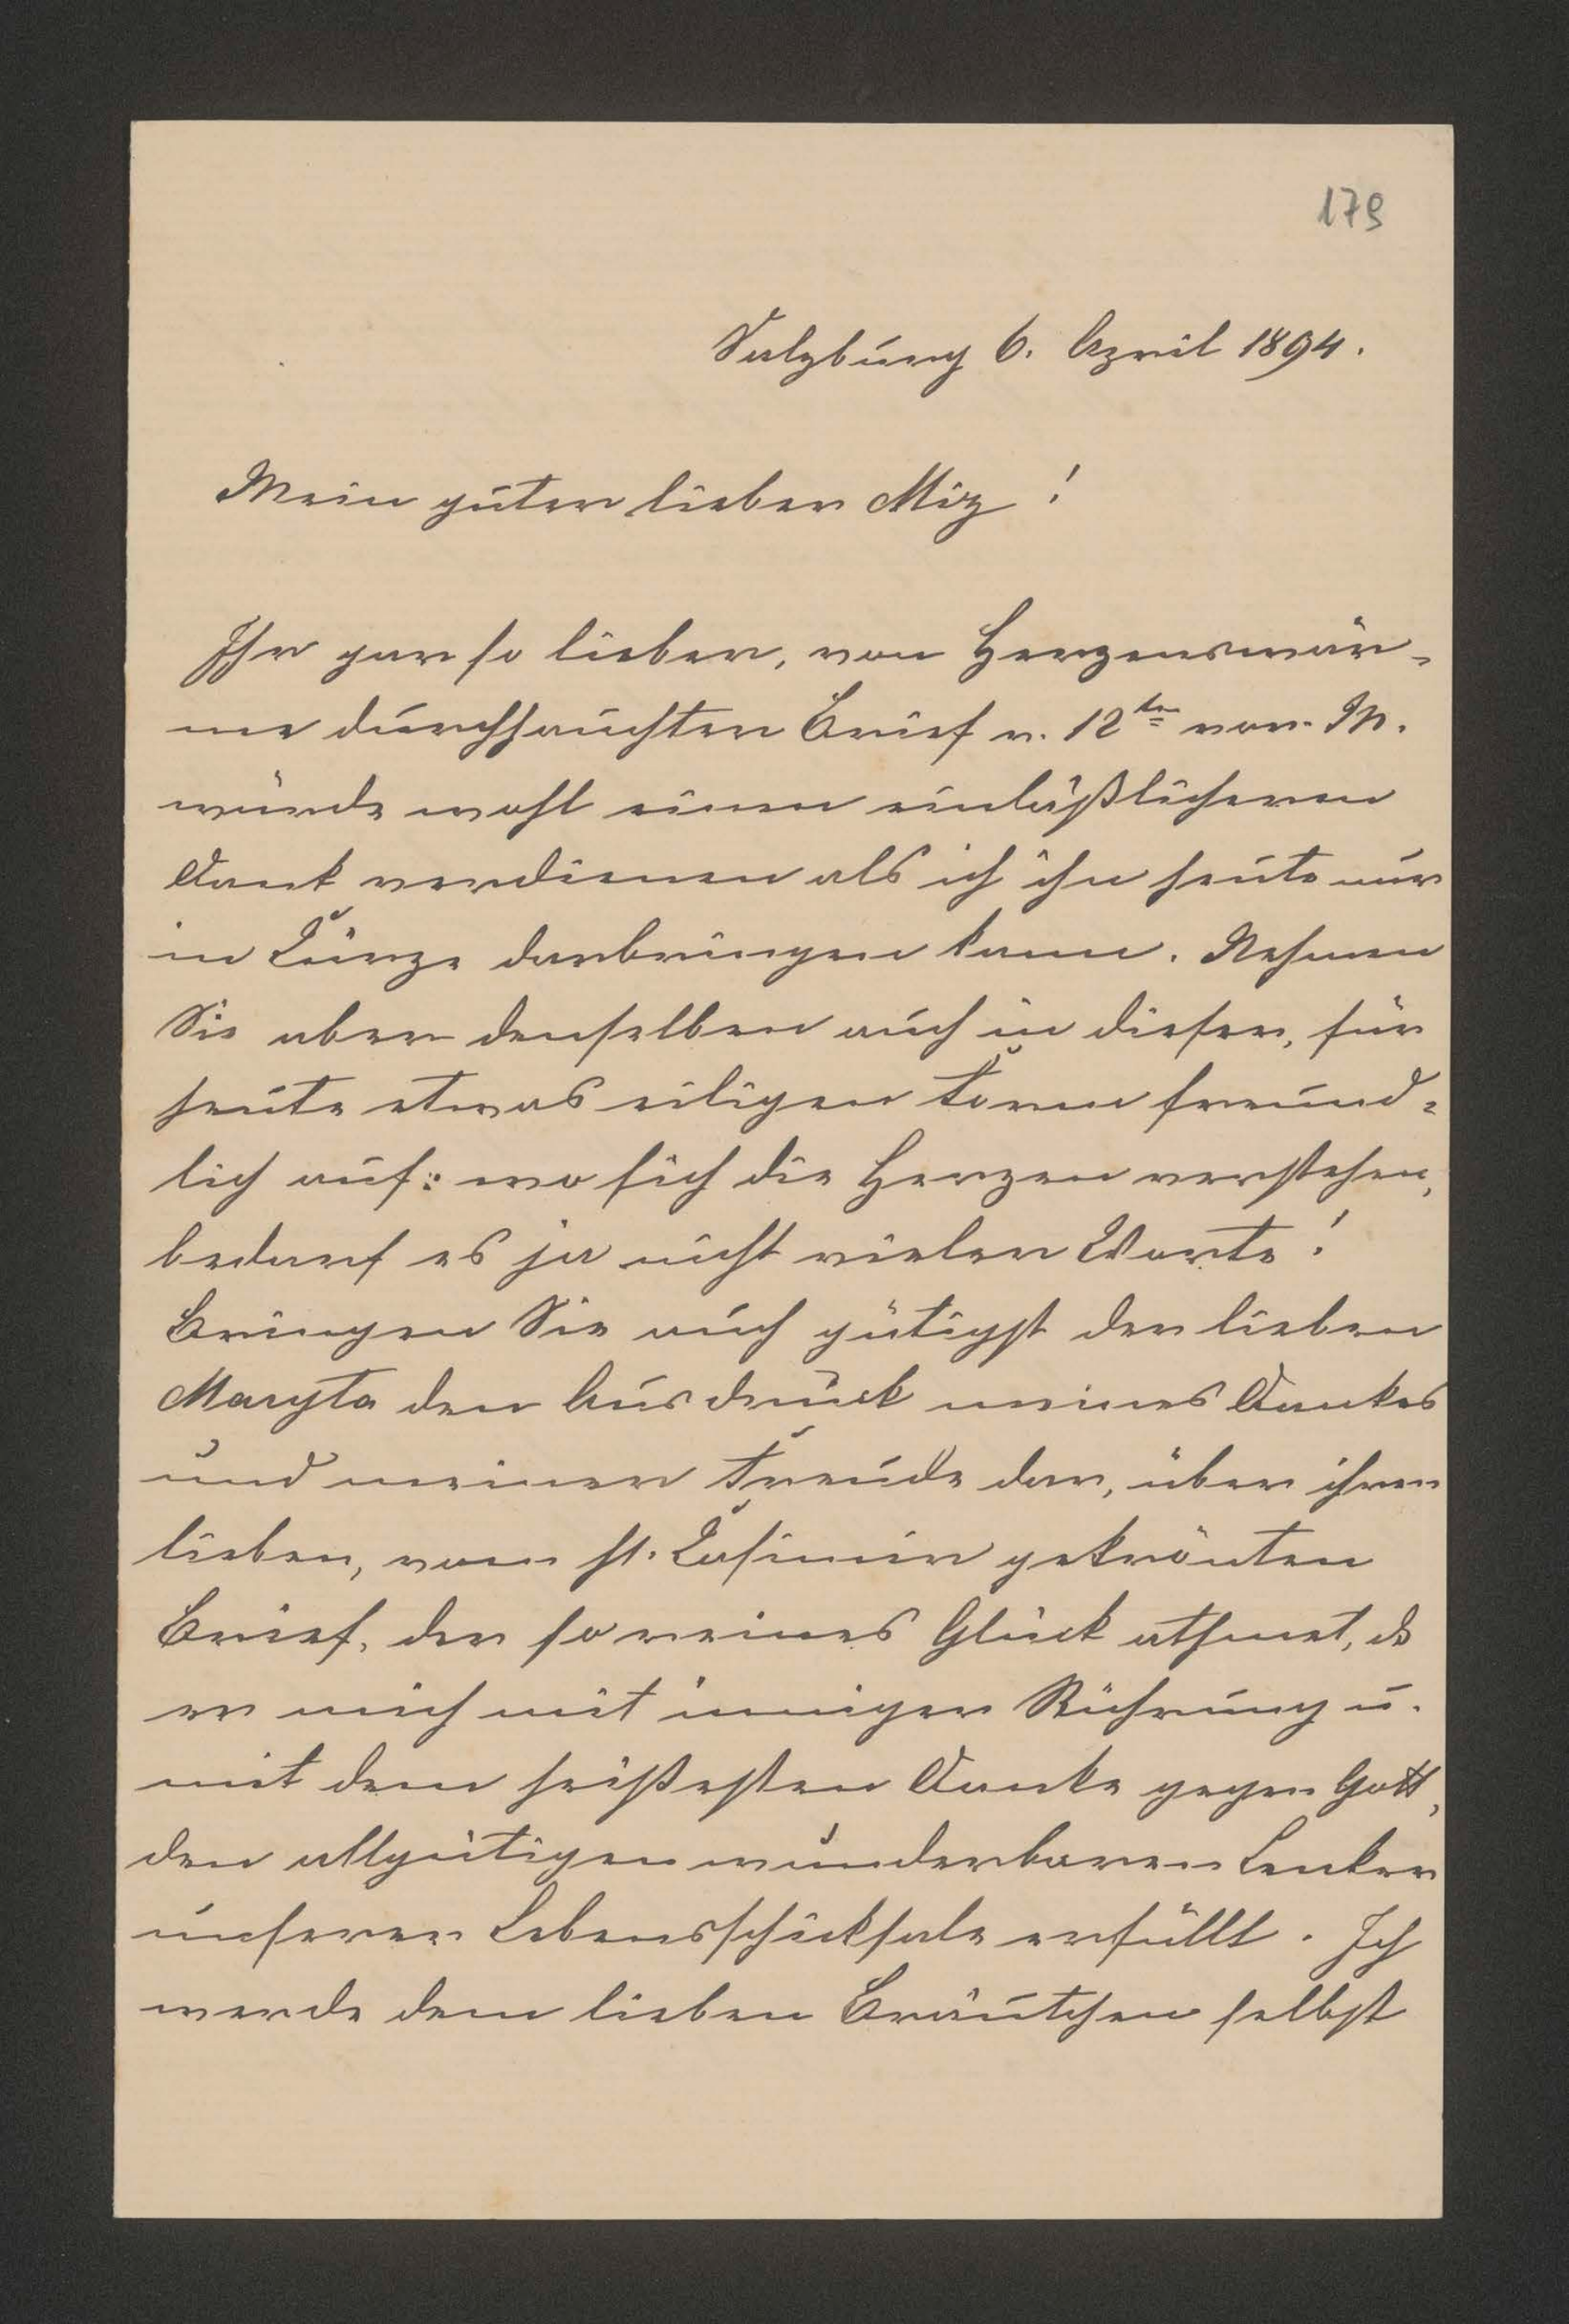 179
Salzburg 6. April 1894.
Mein guter lieber Miz !
Ihr gar so lieber, von Herzenswär-
me durchhauchter Brief v. 12ten vor. M.
würde wohl einen einläßlicheren
Dank verdienen als ich ihn heute nur
in Kürze darbringen kann. Nehmen
Sie aber denselben auch in dieser, für
heute etwas eiligen Form freund-
lich auf: wo sich die Herzen verstehen,
bedarf es ja nicht vieler Worte !
Bringen Sie auch gütigst der lieben
Maryta den Ausdruck meines Dankes
und meiner Freude dar, über ihren
lieben, vom hl. Casimir gekrönten
Brief, der so reines Glück athmet, ds
er mich mit inniger Rührung u.
mit dem heißesten Danke gegen Gott,
den allgütigen wunderbaren Lenker
unserer Lebensschicksale erfüllt. Ich
werde dem lieben Bräutchen selbst